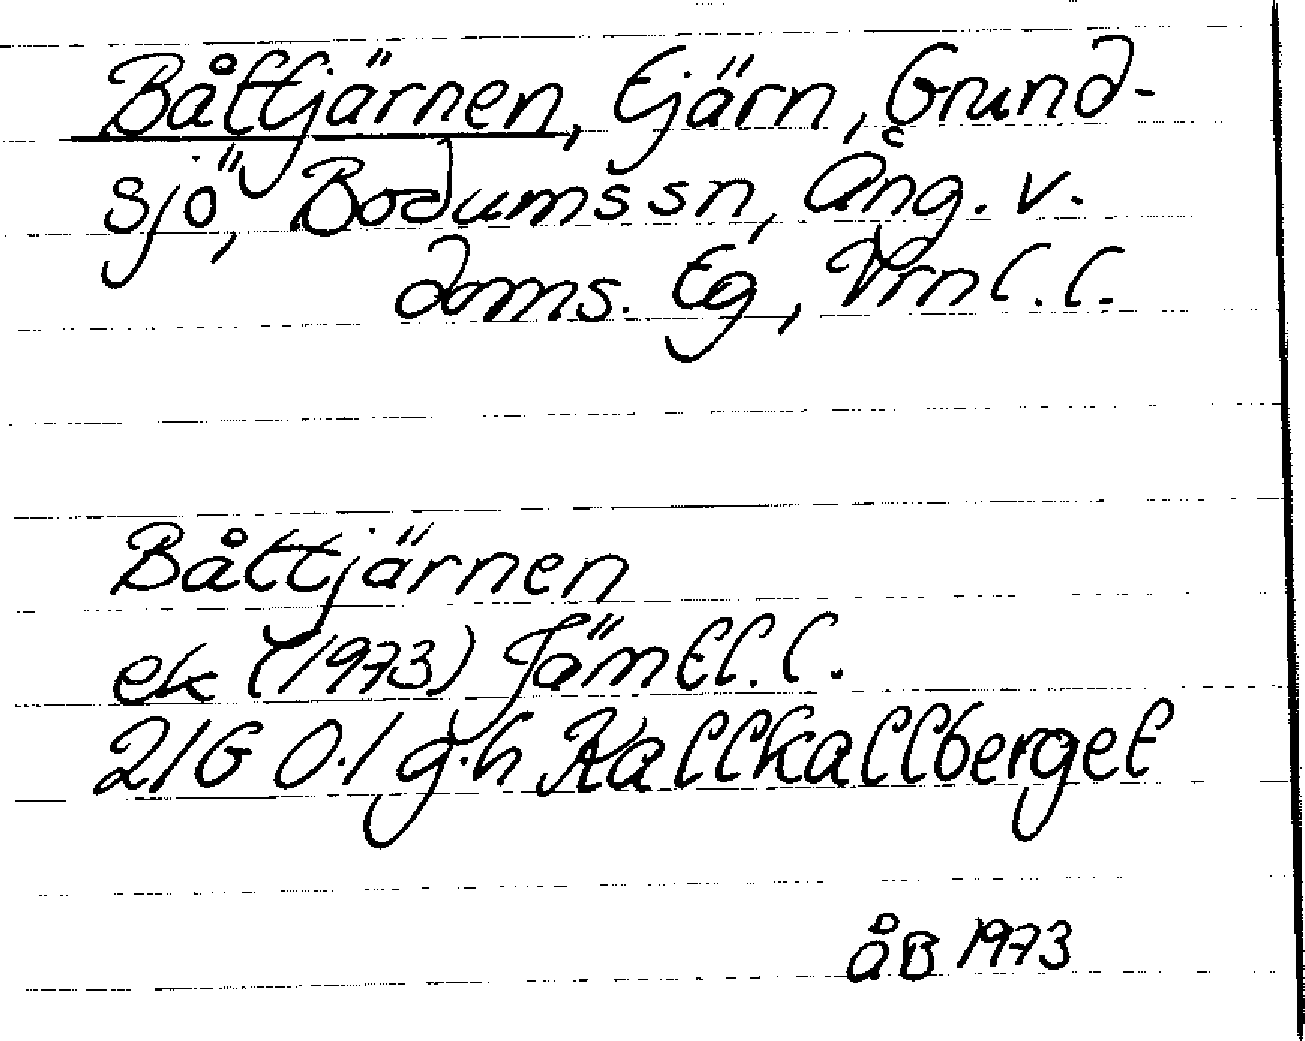 Båttjärnen, tjärn, Grund-
sjö, Bodums sn, Ång. v.
doms. tg, Vrnl. l.
Båttjärnen
ek (1973) Jämtl. l.
21G 0.1 g.h Kallkallberget
åB 1973